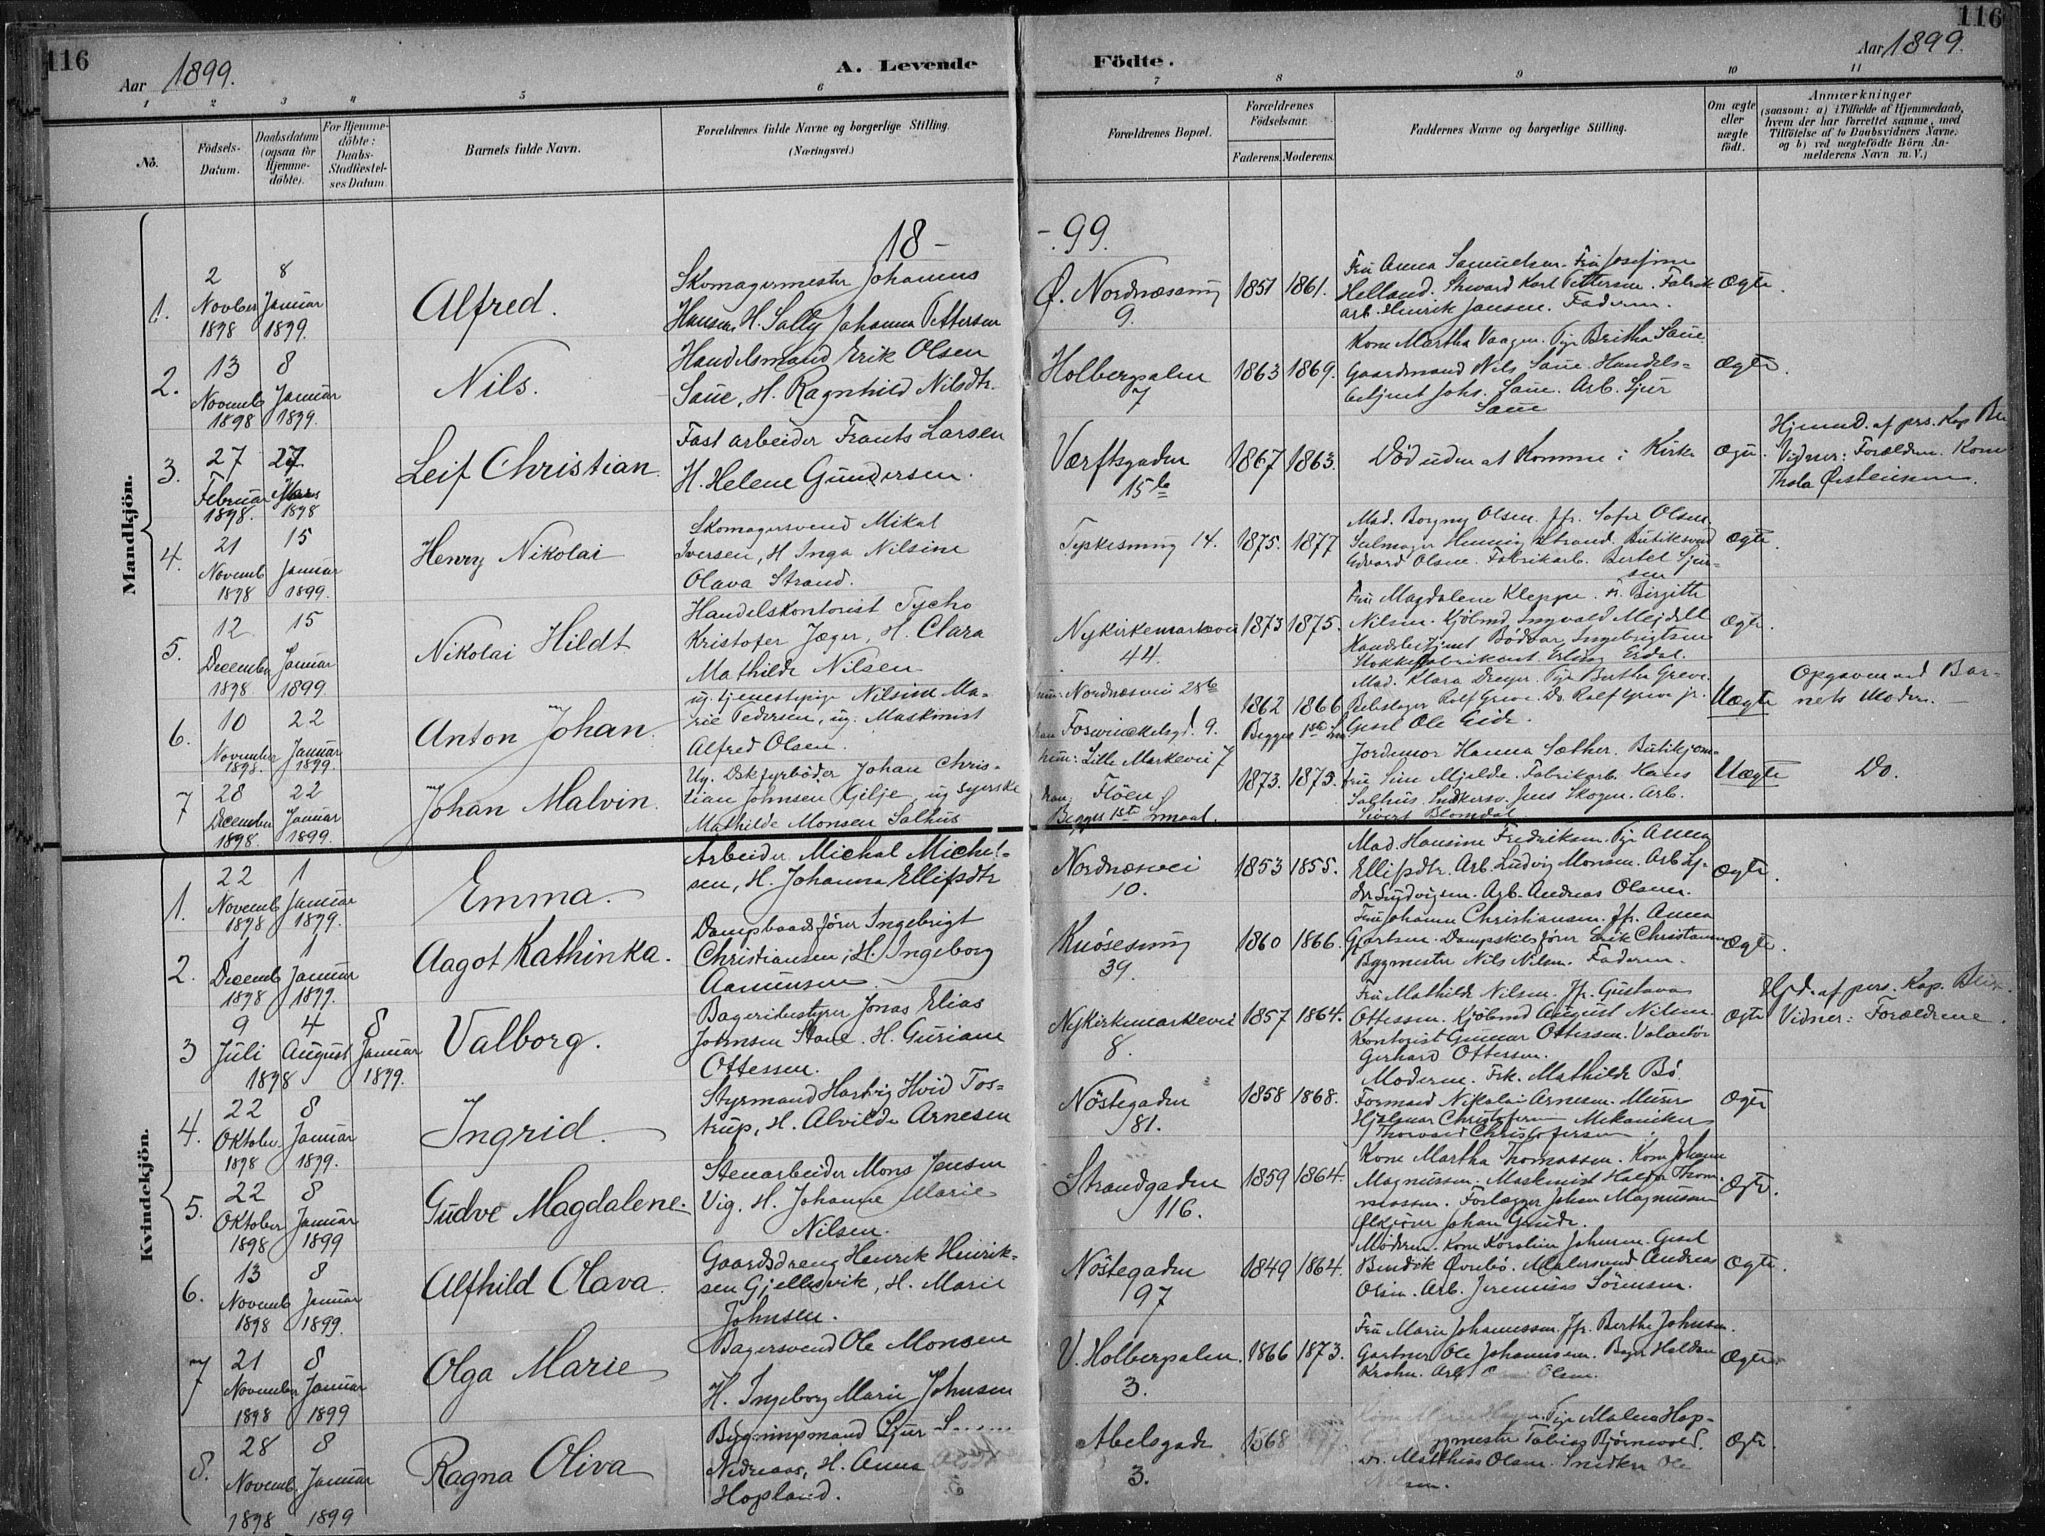 116
116
Aar 1899.
A. Levende Födte.
Aar 1899.
1 2 3 4 5 6 7 8 9 10 11
No.
Födsels-Datum.
Daabsdatum (ogsaa for Hjemme-döbte).
For Hjemme-döbte: Daabs-Stadfæstel-ses Datum.
Barnets fulde Navn.
Forældrenes fulde Navne og borgerlige Stilling.
(Næringsvei.)
Forældrenes Bopæl.
Forældrenes Födselsaar.
Faderens. Moderens.
Faddernes Navne og borgerlige Stilling.
Om ægte eller uægte födt.
Anmærkninger
(saasom: a) i Tilfælde af Hjemmedaab, hvem der har forrettet samme, med Tilföielse af to Daabsvidners Navne, og b) ved uægtefödte Börn An-melderens Navn m. V.)
18 - - 99.
Mandkjön.
1. 2 Novber 1898 8 Januar 1899. Alfred.
Skomagermester Johannes
Hansen, H. Sally Johanna Pettersen
Ø. Nordnæsmug 9. 1851 1861.
Fru Anna Samuelsen. Fru Josefine
Helland. Steward Karl Pettersen. Fabrik
arb. Henrik Jansen. Faderen.
Ægte.
2. 13 Novemb 1898 8 Januar 1899. Nils.
Handelsmand Erik Olsen
Saue, H. Ragnhild Nilsdtr.
Holbergsalm 7 1863 1869.
Kone Martha Vaagen. Pige Britha Saue
Gaardmand Nils Saue. Handels-
betjent Johs. Saue. Arb. Sjur
Saue
Ægte.
3. 27 Februar 1898. 27 Mars 1898 Leif Christian.
Fast arbeider Frants Larsen
H. Helene Gundersen.
Værftsgaden 15 b 1867 1863.
Död uden at komme i Kirke
Hjemmd. af pers. Kap
Vidner: Forældren. Kone
Thala Øisteinsen.
4. 21 Novemb 1898 15 Januar 1899. Henry Nikolai
Skomagersvend Mikal
Iversen, H Inga Nilsine
Olava Strand.
14. 1875. 1877
Mad. Borgny Olsen. Jfr. Sofie Olsen
Seilmager Henning Strand. Butiksvend
Edvard Olsen. Fabrikarb. Bertel Sjur-
sen
Ægte.
5. 12 December 1898. 15 Januar 1899. Nikolai Hildt.
Handelskontorist Tycho
Kristofer Jæger, H. Clara
Mathilde Nilsen
Nykirkemarkevei 44. 1873 1875.
Fru Magdalene Kleppe. Fr. Birgitte
Nilsen. Kjöbmd Ingvald Mejdell
Handelsbetjent Bödvar Ingebrigtsen
Stokkefabrikant Erling Eidal.
Ægte.
6. 10 November 1898. 22 Januar 1899. Anton Johan.
ug. tjenestepige Nilsine Ma-
rie Pedersen, ug. Maskinist
Alfred Olsen.
hun: Nordnæsvei 28 b
han Foswinckelsgd. 9. 1862 1866 Begges 1ste
Mad. Klara Dreyer. Pige Berthe Greve
Rebslager Rolf Greve. Do. Rolf Greve jr.
Gesel Ole Eide.
Uægte
Opgaven ved Bar-
nets Moder.
7 28 December 1898. 22 Januar 1899. Johan Malvin.
Ug. Dekfyrböder Johan Chris-
tian Johnsen Gilje, ug syerske
Mathilde Monsen Salhus
hun: Lille Markevei 7
han Flöen
Begges 1st maal. 1873. 1875.
Jordemor Hanna Sæther. Butikjom-
fru Sine Mjelde. Fabrikarb. Hans
Salhus. Snedkersv. Jens Skogen. Arb.
Sivert Blomdal
Uægte
Do.
Kvindekjön.
1. 22 Novemb 1898 1 Januar 1899. Emma.
Arbeider Michal Michel-
sen, H. Johanna Ellifsdtr
Nordnæsvei 10. 1853 1855.
Mad. Hansine Fredriksen. Pige Anna
Ellifsdtr. Arb. Ludvig Monsen. Arb. Pe-
der Ludvigsen. Arb. Andreas Olsen.
Ægte.
2. 1 Decemb 1898 1 Januar 1899. Aagot Kathinka.
Dampbaadsförer Ingebrigt
Christiansen, H. Ingeborg
Aamunsen
Knösesmug 39. 1860 1866.
Fru Johanne Christiansen. Jfr. Anna
Gjertsen. Dampskibsförer Erik Christiansen
Bygmester Nils Nilsen. Faderen.
Ægte.
3 9 Juli 4 August 1898 8 Januar 1899. Valborg.
Bageribestyrer Jonas Elias
Johnsen Stave. H. Guriane
Ottessen.
Nykirkemarkevei 8. 1857 1864.
Fru Mathilde Nilsen. Jfr. Gustava
Ottessen. Kjöbmd August Nilsen.
Kontorist Gunnar Ottessen.
Gerhard Ottersen.
Ægte
Hjd. af pers. Kap.
Vidner: Forældrene.
4. 22 Oktober 1898 8 Januar 1899. Ingrid.
Styrmand Hartvig Hvid Tos-
trup, H. Alvilde Arnesen
Nöstegaden 81. 1858 1868.
Moderen. Frk. Mathilde Bö
Formand Nikolai Arnesen. Murer
Hjalmar Christofersen Mekaniker
Thorvald Christofersen
Ægte
5. 22 Oktober 1898 8 Januar 1899 Gudve Magdalene.
Stenarbeider Mons Jensen
Vig. H. Johanne Marie
Nilsen.
Strandgaden 116. 1859 1864.
Kone Martha Thomassen. Kone Johanne
Magnussen. Maskinist Halfd. Thom-
massen. Forlægger Johan Magnussen
Ölkjörer Johan Grude.
Ægte.
6. 13 Novemb 1898 8 Januar 1899. Alfhild Olava.
Gaardsdreng Henrik Henrik-
sen Gjellesvik, H. Marie
Johnsen.
Nöstegaden 97 1849 1864.
Moderen. Kone Karoline Johnsen. Gesel
Bendik Øvrebö. Malersvend Andreas
Olsen. Arb. Jeremias Sörensen.
Ægte.
7 21 November 1898 8 Januar 1899 Olga Marie
Bagersvend Ole Monsen
H. Ingeborg Marie Johnsen
V. Holbergsalm. 3. 1866 1873.
Fru Marie Johannessen. Jfr. Berthe Johnsen.
Gartner Ole Johannessen. Bager Haldan
Krohn. Arb. Olsen.
Ægte
8. 28 Novemb. 1898 8 Januar 1899 Ragna Oliva
Bygningsmand Sjur
Nedreaas, H. Anna
Hopland.
Abelsgade 3. 1868
Pige Malene Hop-
Bygmester Tobias Björnevold.
Do. Matthias Olsen. Snidker Ole
Nilsen.
Ægte.